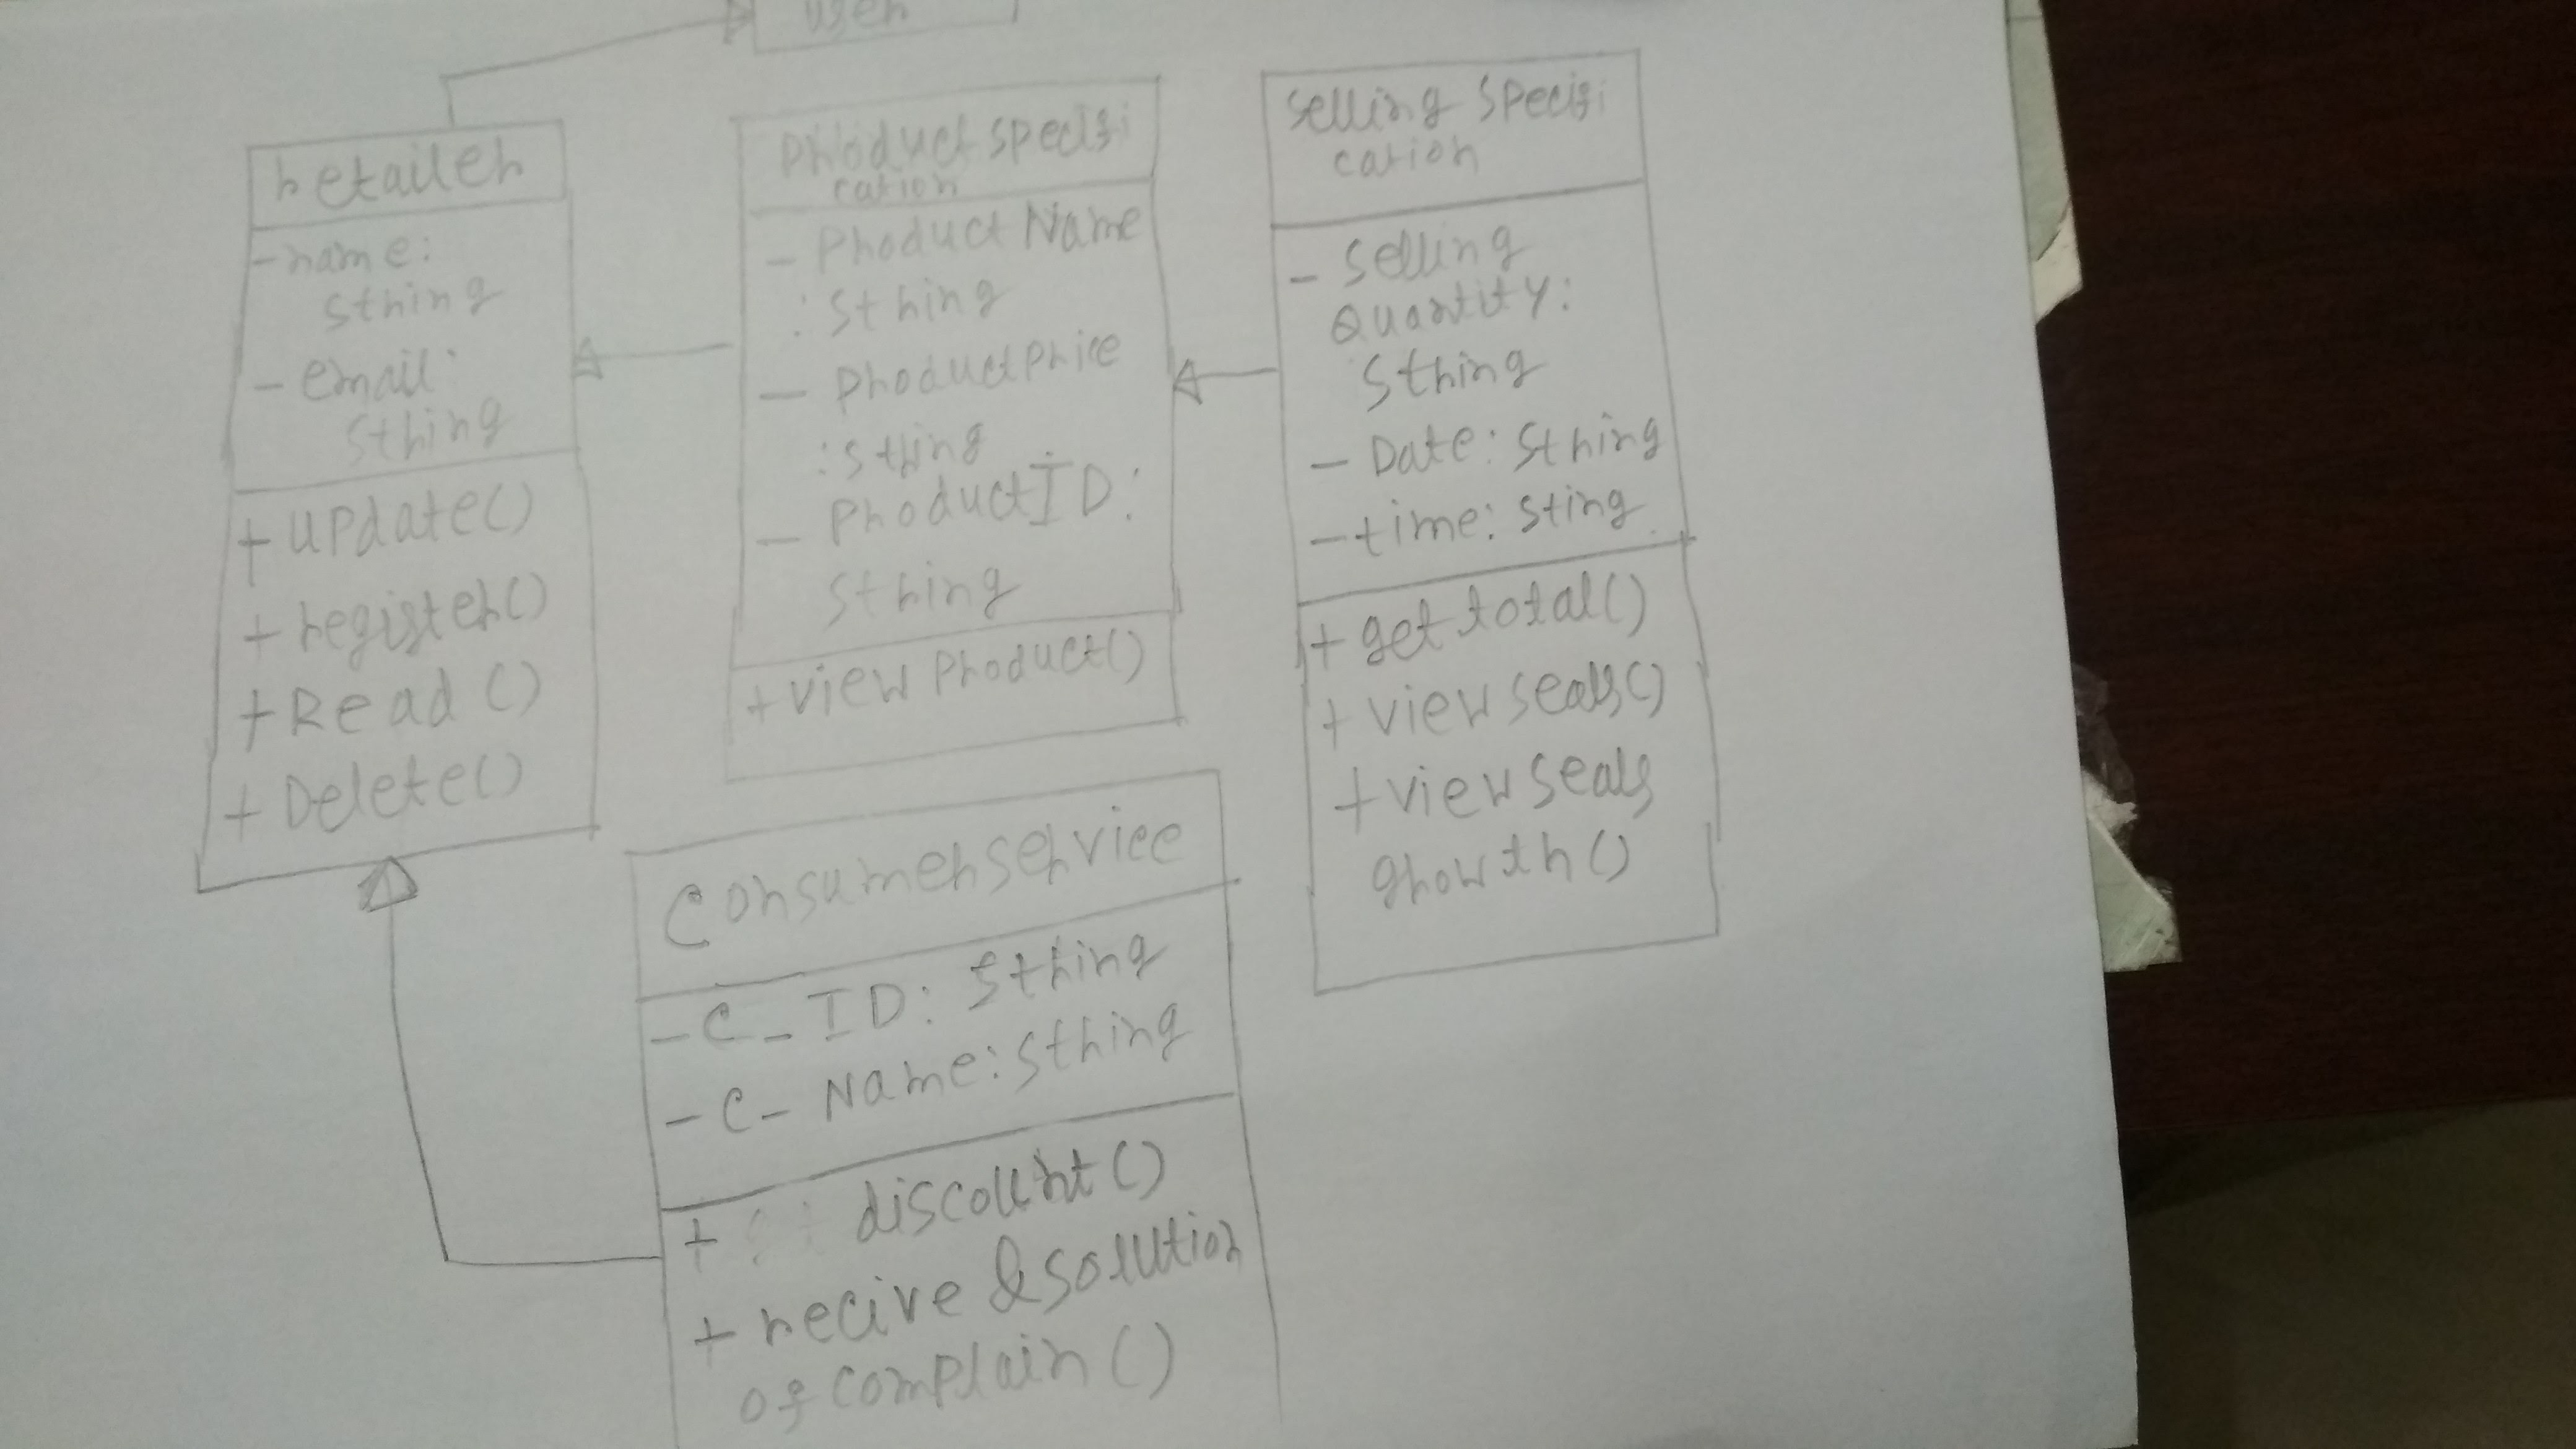 user
retailer
- name:
string
- email:
string
+ update()
+ register()
+ Read ()
+ Delete()
Product specifi
cation
- Product Name
: String
- ProductPrice
: string
- ProductID:
String
+ view Product()
Selling Specifi
cation
- Selling
Quantity:
String
- Date: String
- time: Sting
+ get total()
+ view seals()
+ view seals
growth()
Consumer service
- C_ID: String
- C- Name: String
+ discount()
+ recive & solution
of complain ()